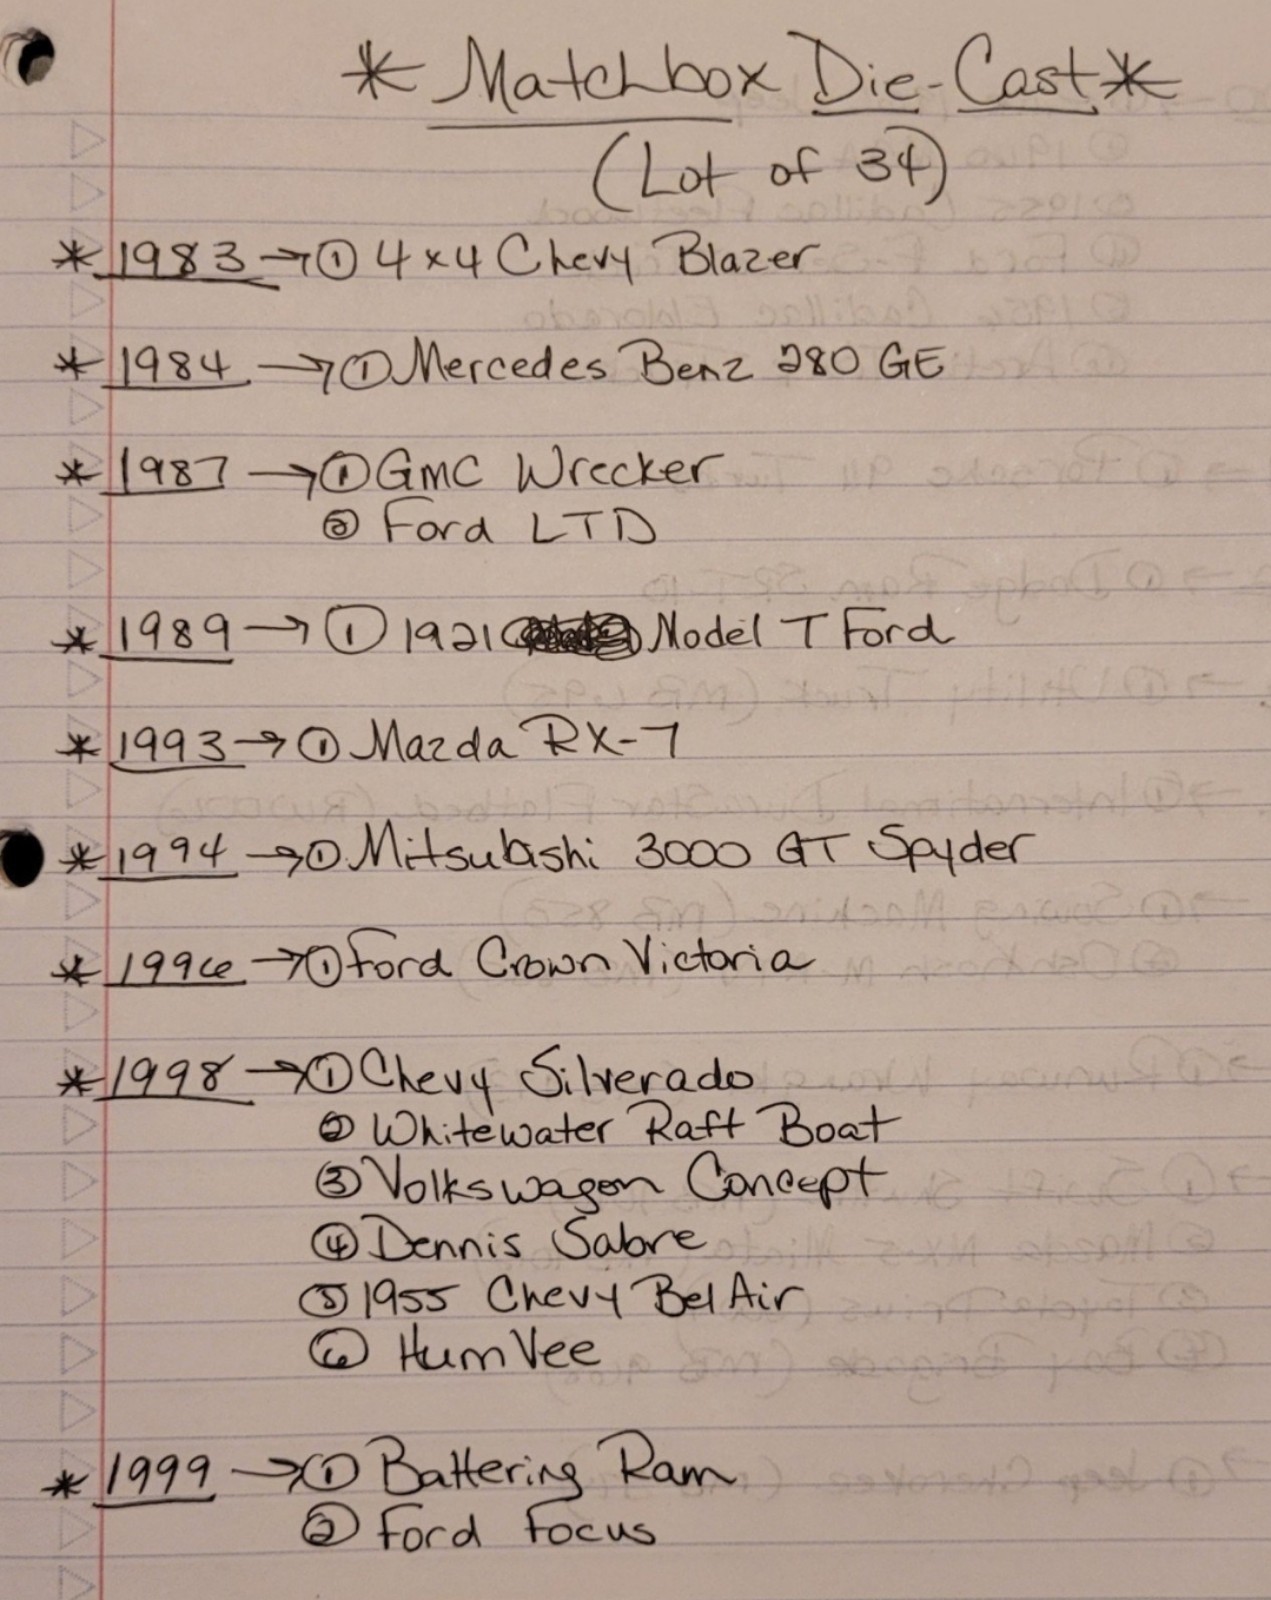 * Matchbox Die-Cast *
(Lot of 34)
* 1983 → ① 4x4 Chevy Blazer
* 1984 → ① Mercedes Benz 280 GE
* 1987 → ① GMC Wrecker
② Ford LTD
* 1989 → ① 1921 Model T Ford
* 1993 → ① Mazda RX-7
* 1994 → ① Mitsubishi 3000 GT Spyder
* 1996 → ① Ford Crown Victoria
* 1998 → ① Chevy Silverado
② Whitewater Raft Boat
③ Volkswagon Concept
④ Dennis Sabre
⑤ 1955 Chevy Bel Air
⑥ HumVee
* 1999 → ① Battering Ram
② Ford Focus